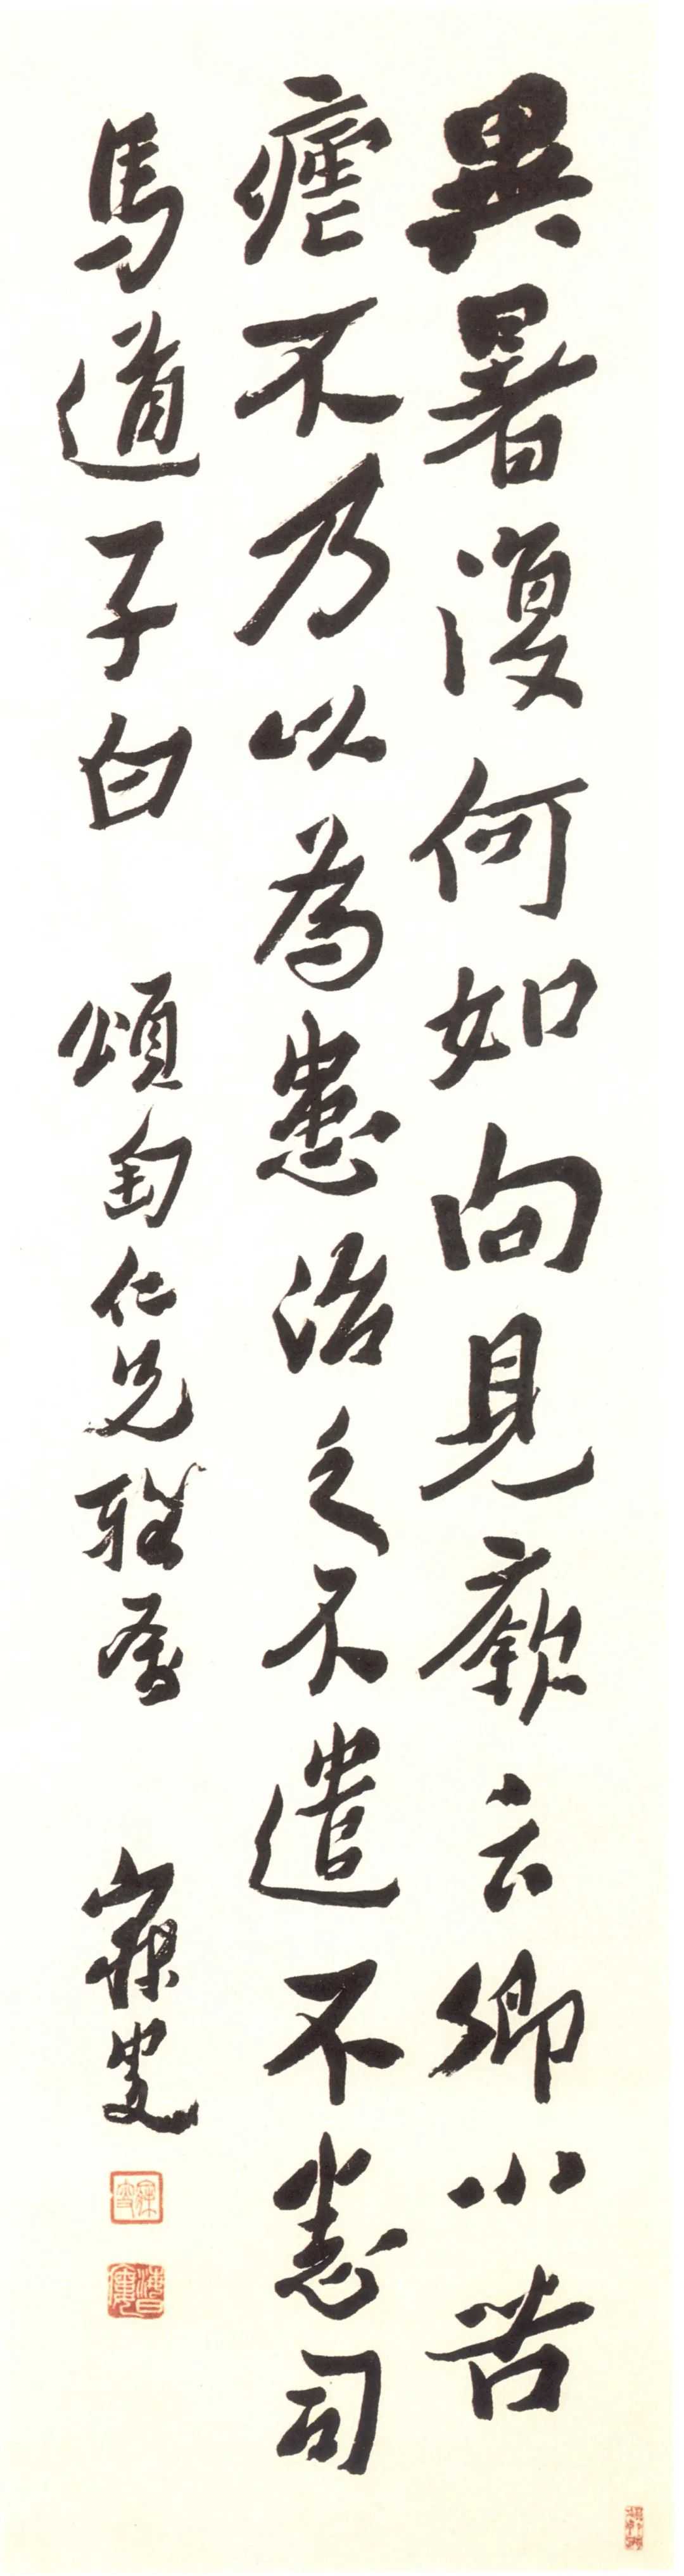 異暑復何如向見廞云卿小苦
瘧不乃以為患治之不遣不悉司
馬道子白 頌匋仁兄雅屬 寐叟